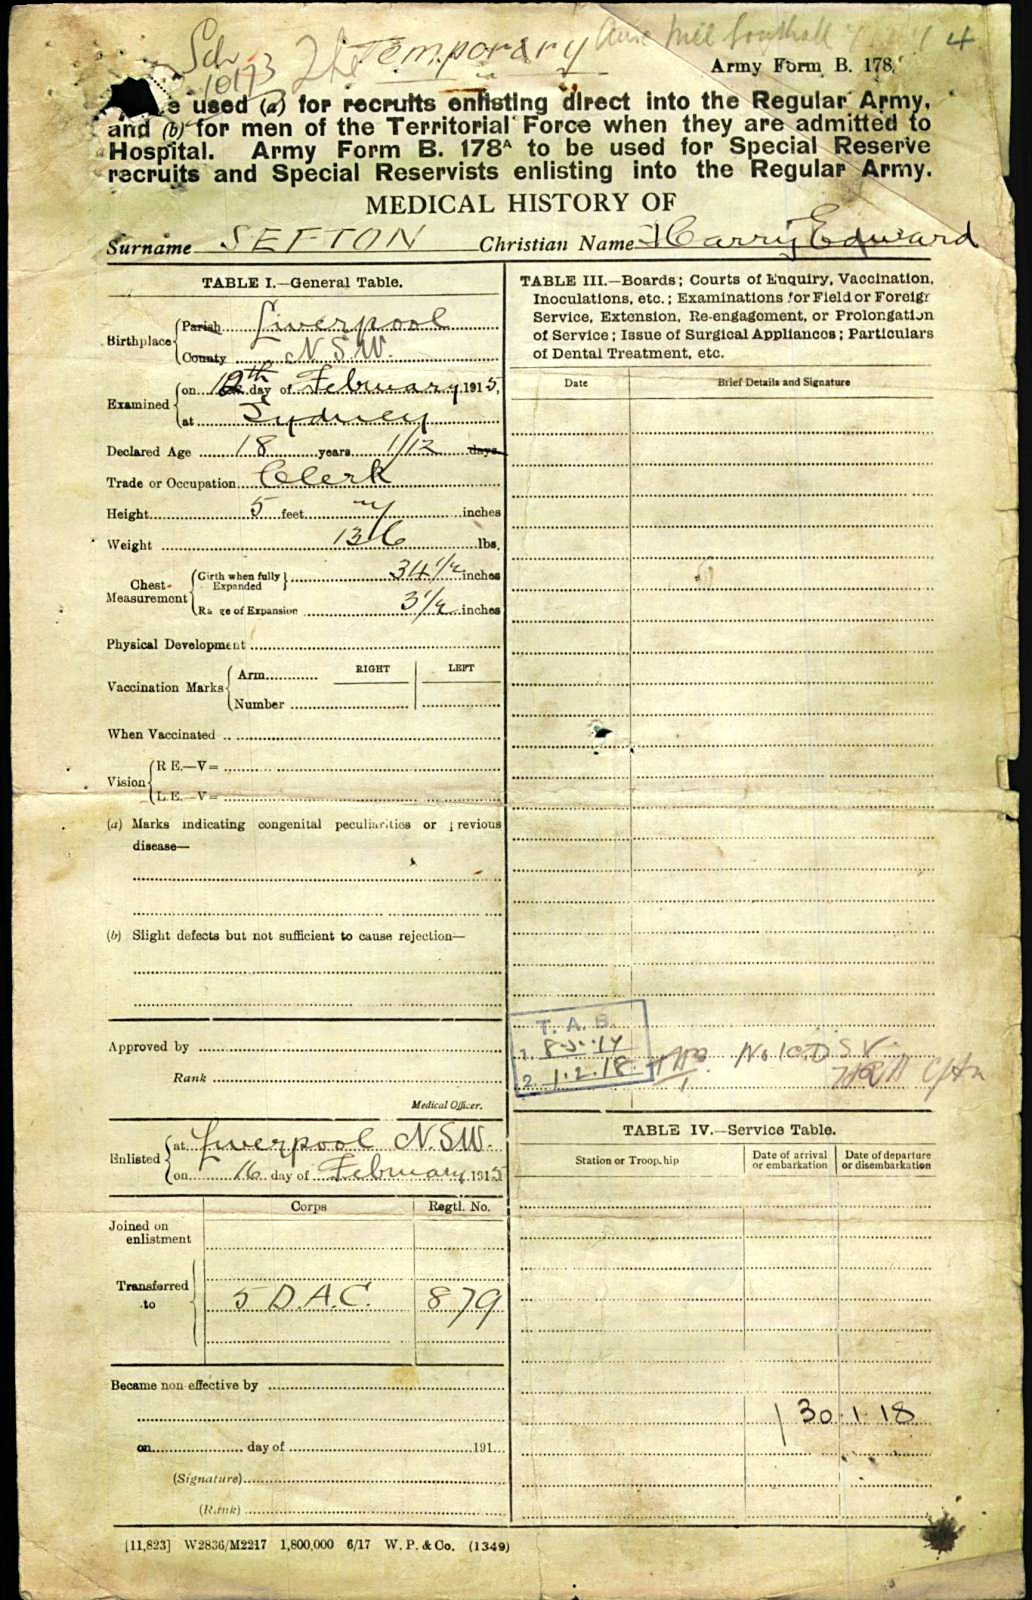 Sch
10173
Temporary
Army Form B. 178.
e used (a) for recruits enlisting direct into the Regular Army,
and (b) for men of the Territorial Force when they are admitted to
Hospital. Army Form B. 178A to be used for Special Reserve
recruits and Special Reservists enlisting into the Regular Army.
MEDICAL HISTORY OF
Surname SEFTON Christian Name Harry Edward
TABLE I.—General Table.
Birthplace
Parish Liverpool
County N.S.W.
Examined
on 12th day of February 1915,
at Sydney
Declared Age 18 years 1/12 days
Trade or Occupation Clerk
Height 5 feet 7 inches
Weight 136 lbs.
Chest Measurement
Girth when fully Expanded 34 1/2 inches
Range of Expansion 3 1/2 inches
Physical Development
Vaccination Marks
Arm RIGHT LEFT
Number
When Vaccinated
Vision
R.E.—V=
L.E.—V=
(a) Marks indicating congenital peculiarities or previous
disease—
(b) Slight defects but not sufficient to cause rejection—
Approved by
Rank
Medical Officer.
Enlisted
at Liverpool N.S.W.
on 16 day of February 1915
Corps Regtl. No.
Joined on
enlistment
Transferred
to
5 D.A.C. 879
Became non-effective by
on day of 191
(Signature)
(Rank)
TABLE III.—Boards; Courts of Enquiry, Vaccination,
Inoculations, etc.; Examinations for Field or Foreign
Service, Extension, Re-engagement, or Prolongation
of Service; Issue of Surgical Appliances; Particulars
of Dental Treatment, etc.
Date Brief Details and Signature
T. A. B.
1.
2. 1.2.18
TABLE IV.—Service Table.
Station or Troopship
Date of arrival
or embarkation
Date of departure
or disembarkation
30.1.18
[11,823] W2836/M2217 1,800,000 6/17 W. P. & Co. (1349)